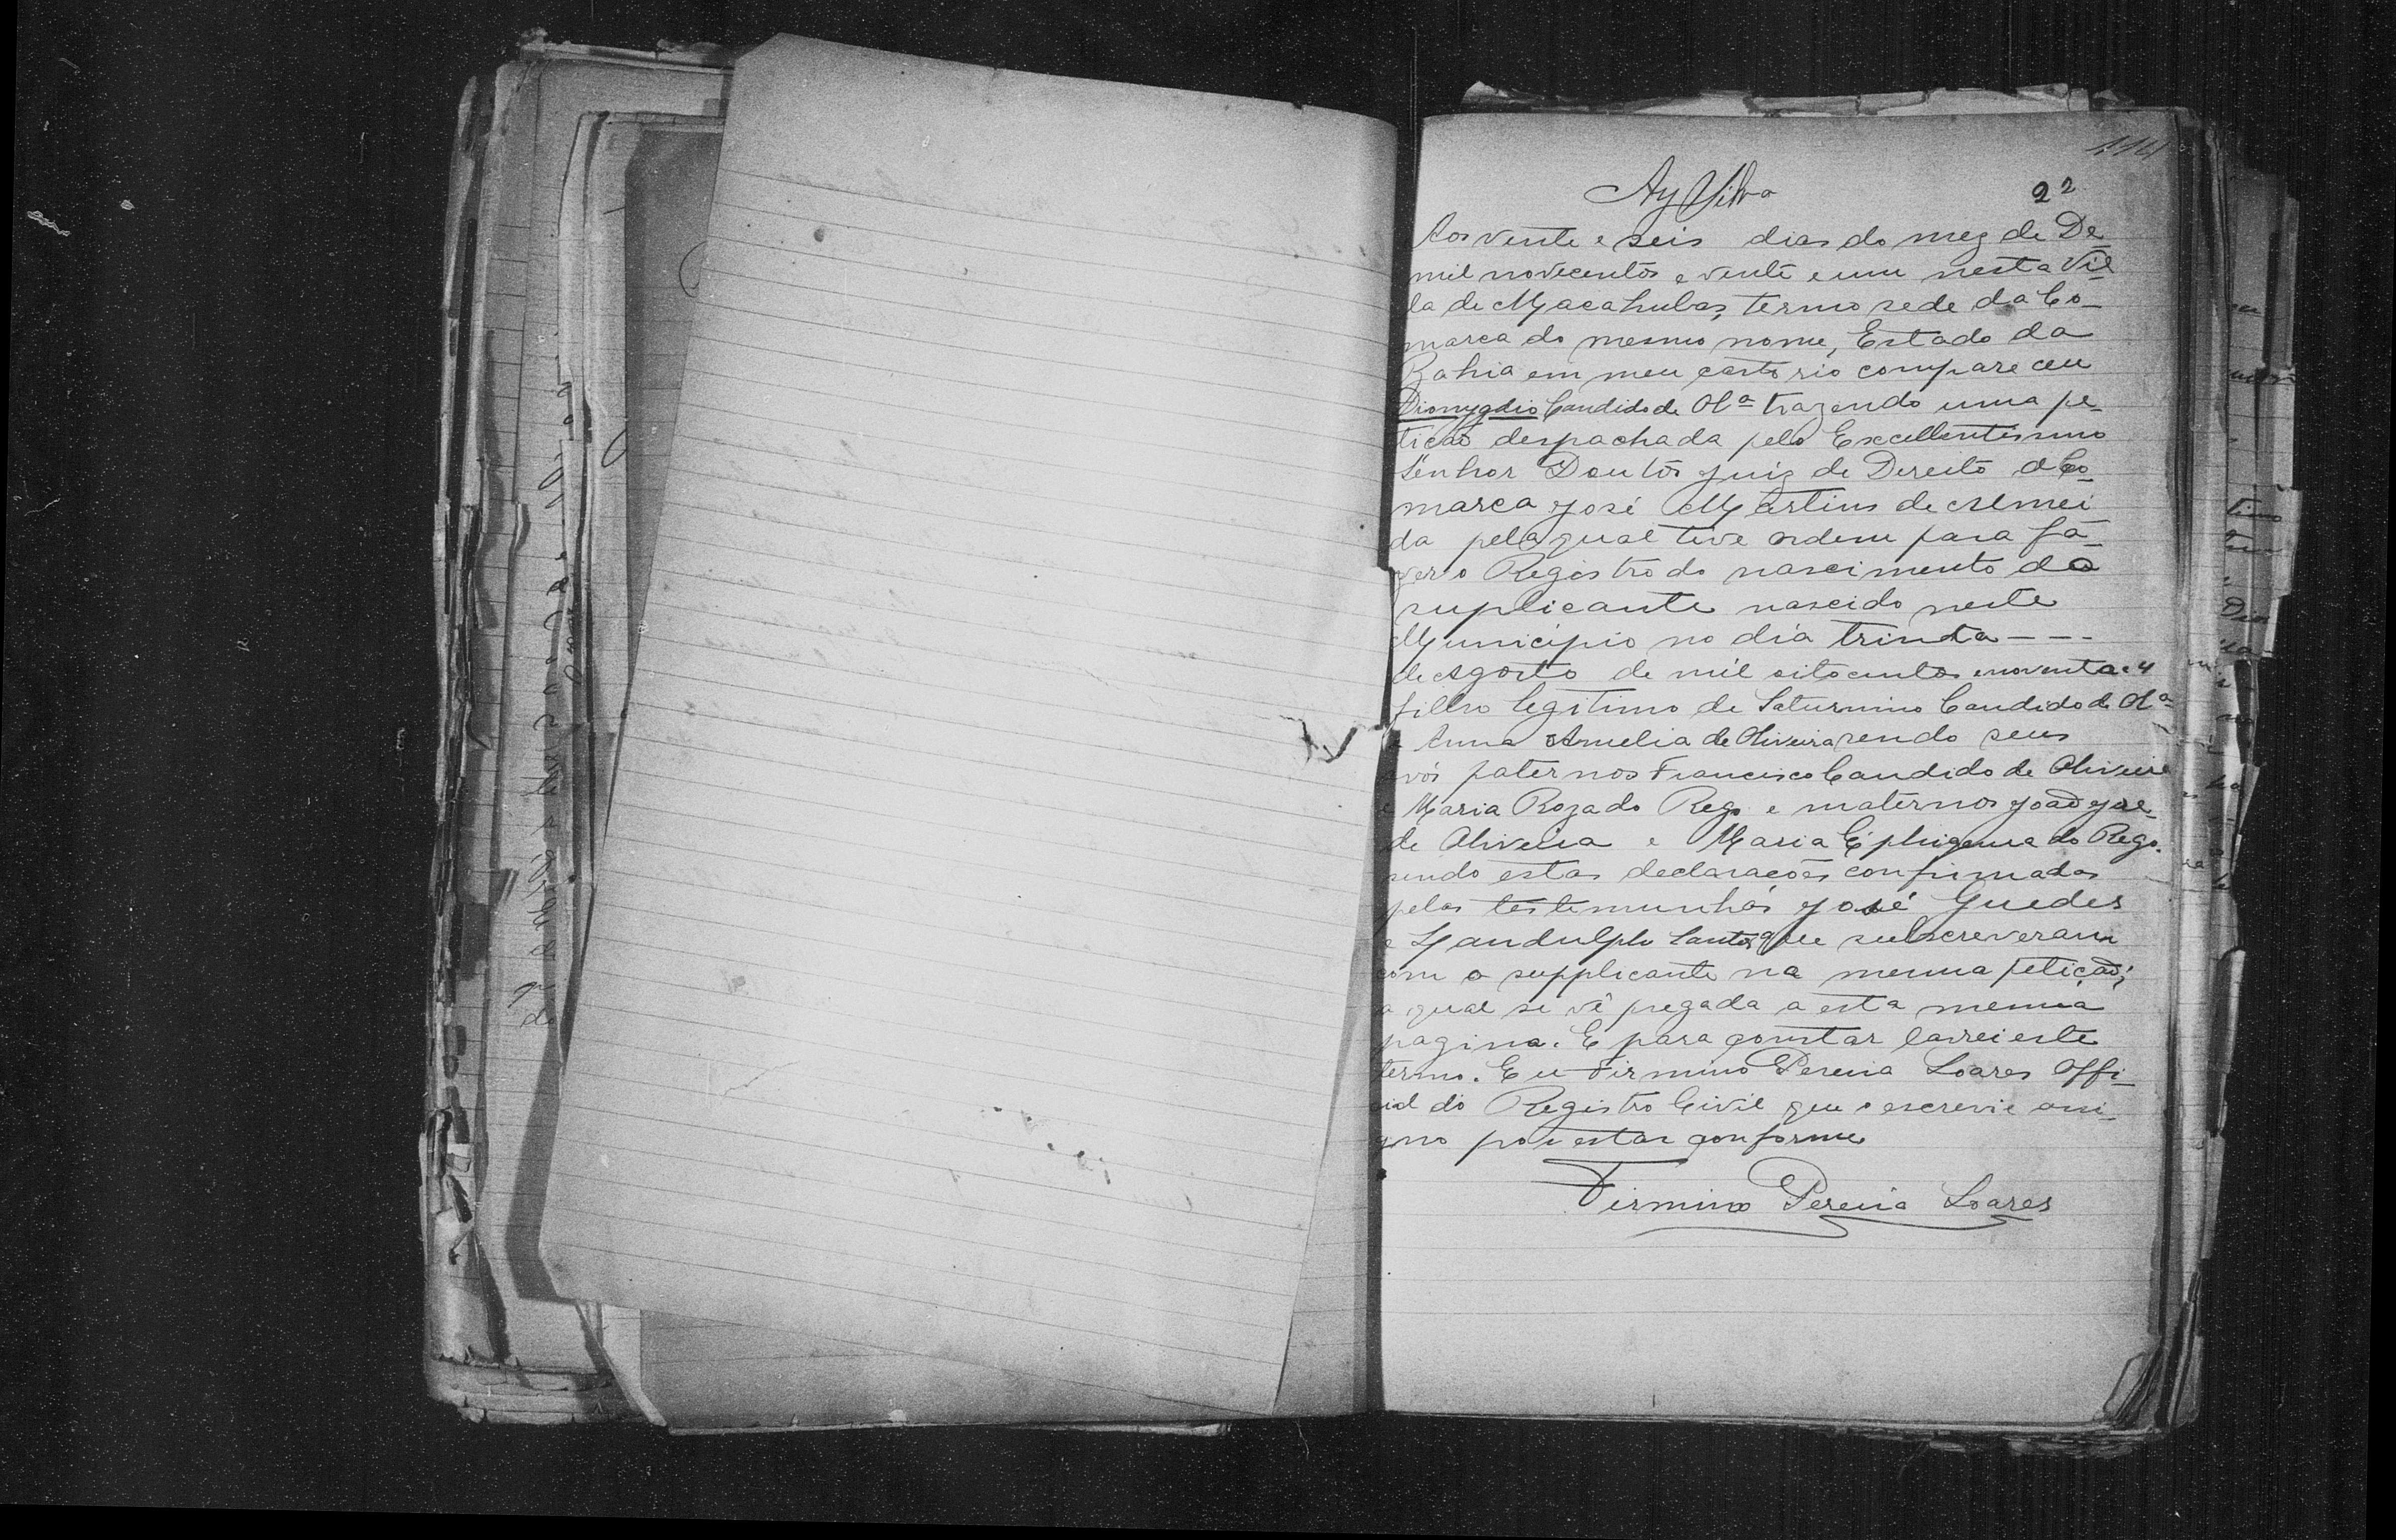 114
Ay Silva 22
Aos vente e seis dias do mez de De
mil novecentos e vente e um nesta Vil
la de Macahubas, termo sede da Co-
marca do mesmo nome, Estado da
Bahia em meu cartorio compareceu
Dionyzdio Candido de Olª trazendo uma pe-
tição despachada pelo Excellentissimo
Senhor Doutor Juiz de Direito da Co-
marca José Martins de Almei
da pela qual tive ordem para fa-
zer o Registro do nascimento do
suplicante nascido neste
Municipio no dia trinta - - -
de Agosto de mil oitocentos e noventa e 4
filho legitimo de Saturnino Candido de Olª
e Anna Amelia de Oliveira sendo seus
avós paternos Francisco Candido de Oliveira
e Maria Roza do Rego e maternos João José
de Oliveira e Maria Ephigenia do Rego.
sendo estas declaracões confirmadas
pelas testemunhas José Guedes
e Gandulpho Santos que subscreveram
com o supplicante na mesma petição;
a qual se vê pregada a esta mesma
pagina. E para constar lavrei este
termo. Eu Firmino Pereira Soares Offi-
cial do Registro Civil que o escrevi e assi-
gno por estar conforme
Firmino Pereira Soares